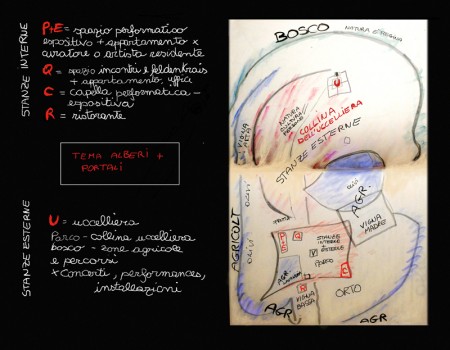 STANZE INTERNE
P+E = spazio performatico
espositivo + appartamento x
curatore o artista residente
Q = spazio incontri e feldenkrais
+ appartamento, uffici
C = capella performatica -
espositiva
R = ristorante
TEMA ALBERI +
PORTALI
STANZE ESTERNE
U = uccelliera
Parco - collina uccelliera
bosco - zone agricole
e percorsi
x Concerti, performances,
installazioni
BOSCO
NATURA
U
NATURA
CULTURA
COLLINA
DELL'UCCELLIERA
STANZE ESTERNE
VIGNA
ALTA
AGR.
VIGNA
MADRE
AGRICOLT
P+E
Q
STANZE
INTERNE
V ESTERNE
PARCO
AGR
C
R
VIGNA
BASSA
ORTO
AGR
AGR